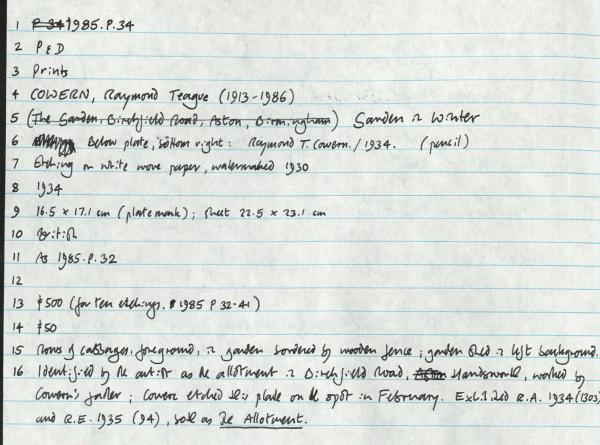 1 P 34 1985.P.34
2 P & D
3 Prints
4 COWERN, Raymond Teague (1913-1986)
5 (The Garden, Birchfield Road, Aston, Birmingham) Garden in Winter
6 Below plate, bottom right: Raymond T. Cowern. / 1934. (pencil)
7 Etching on white wove paper, watermarked 1930
8 1934
9 16.5 x 17.1 cm (platemark); sheet 22.5 x 23.1 cm
10 British
11 As 1985.P.32
12
13 £500 (for ten etchings. 1985 P 32-41)
14 £50
15 Rows of cabbages, foreground, in garden bordered by wooden fence; garden shed in left background.
16 Identified by the artist as the allotment in Birchfield Road, Aston Handsworth, worked by
Cowern's father; Cowern etched this plate on the spot in February. Exhibited R.A. 1934 (1303)
and R.E. 1935 (94), sold as The Allotment.